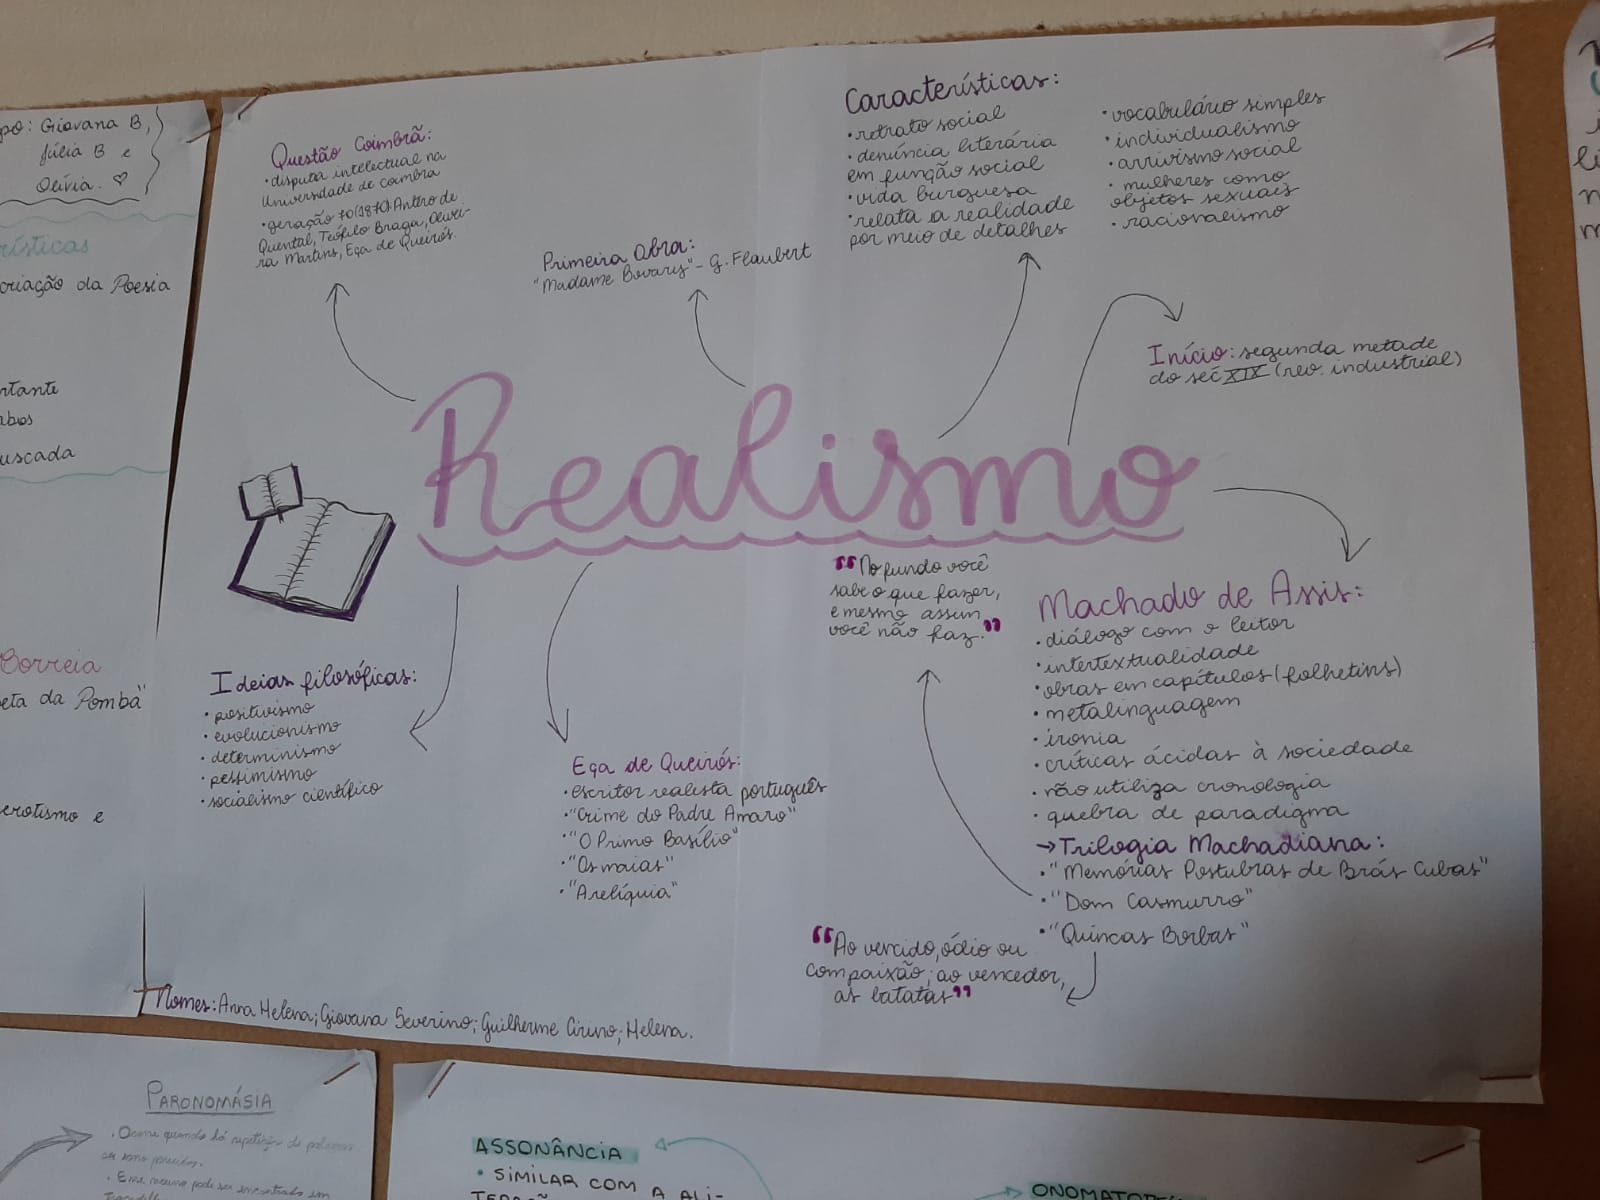 Giovana B,
Júlia B e
Olívia. ♡
criação da Poesia
uscada
Correia
da Pomba"
erotismo e
Questão Coimbrã:
• disputa intelectual na
Universidade de coimbra
• geração 70(1870): Antero de
Quental, Teófilo Braga, Olivei-
ra Martins, Eça de Queirós.
Primeira Obra:
"Madame Bovary" - G. Flaubert
Características:
• retrato social
• denúncia literária
em função social
• vida burguesa
• relata a realidade
por meio de detalhes
• vocabulário simples
• individualismo
• arrivismo social
• mulheres como
objetos sexuais
• racionalismo
Início: segunda metade
do séc XIX (rev. industrial)
Realismo
Ideias filosóficas:
• positivismo
• evolucionismo
• determinismo
• pessimismo
• socialismo científico
Eça de Queirós:
• escritor realista português
• "Crime do Padre Amaro"
• "O Primo Basílio"
• "Os maias"
• "A relíquia"
"No fundo você
sabe o que fazer,
e mesmo assim
você não faz."
Machado de Assis:
• diálogo com o leitor
• intertextualidade
• obras em capítulos (folhetins)
• metalinguagem
• ironia
• críticas ácidas à sociedade
• não utiliza cronologia
• quebra de paradigma
→ Trilogia Machadiana:
• "Memórias Postubras de Brás Cubas"
• "Dom Casmurro"
• "Quincas Borbas"
"Ao vencido, ódio ou
compaixão; ao vencedor,
as batatas"
Nomes: Anna Helena; Giovana Severino; Guilherme Cirino; Helena.
PARONOMÁSIA
• Ocorre quando há repetição de palavras
ASSONÂNCIA
• SIMILAR COM A ALI-